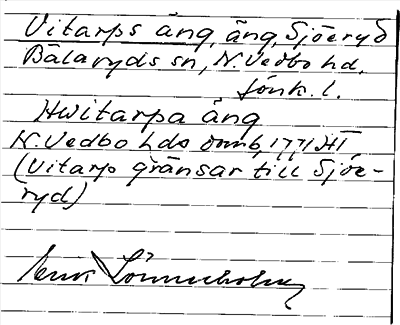 Vitarps äng, äng, Sjöeryd
Bälaryds sn, N. Vedbo hd.
Jönk. l.
Hwitarpa äng
N. Vedbo hds domb. 1771 HT
(Vitarp gränsar till Sjöe-
ryd)